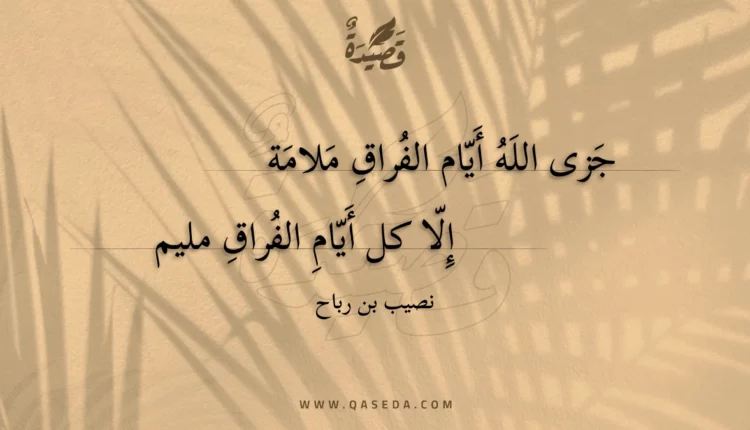 قَصِيدَةٌ
جَزى اللَهُ أَيّام الفُراقِ مَلامَة
إِلّا كل أَيّامِ الفُراقِ مليم
نصيب بن رباح
WWW.QASEDA.COM